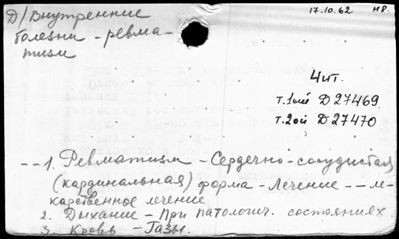 Д/Внутренние
болезни - ревма-
тизм
17.10.62 НР.
Чит.
т.1ый D27469
т.2ой D27470
--1. Ревматизм - Сердечно-сосудистая
(кардинальная) форма - Лечение -- ле-
карственное лечение
2. Дыхание - При патологич. состояниях.
3. Кровь - Газы.